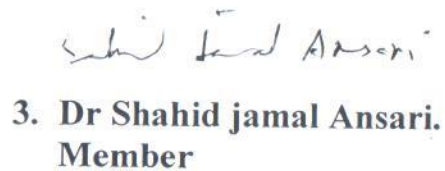 Shahid Jamal Ansari
3. Dr Shahid jamal Ansari.
Member